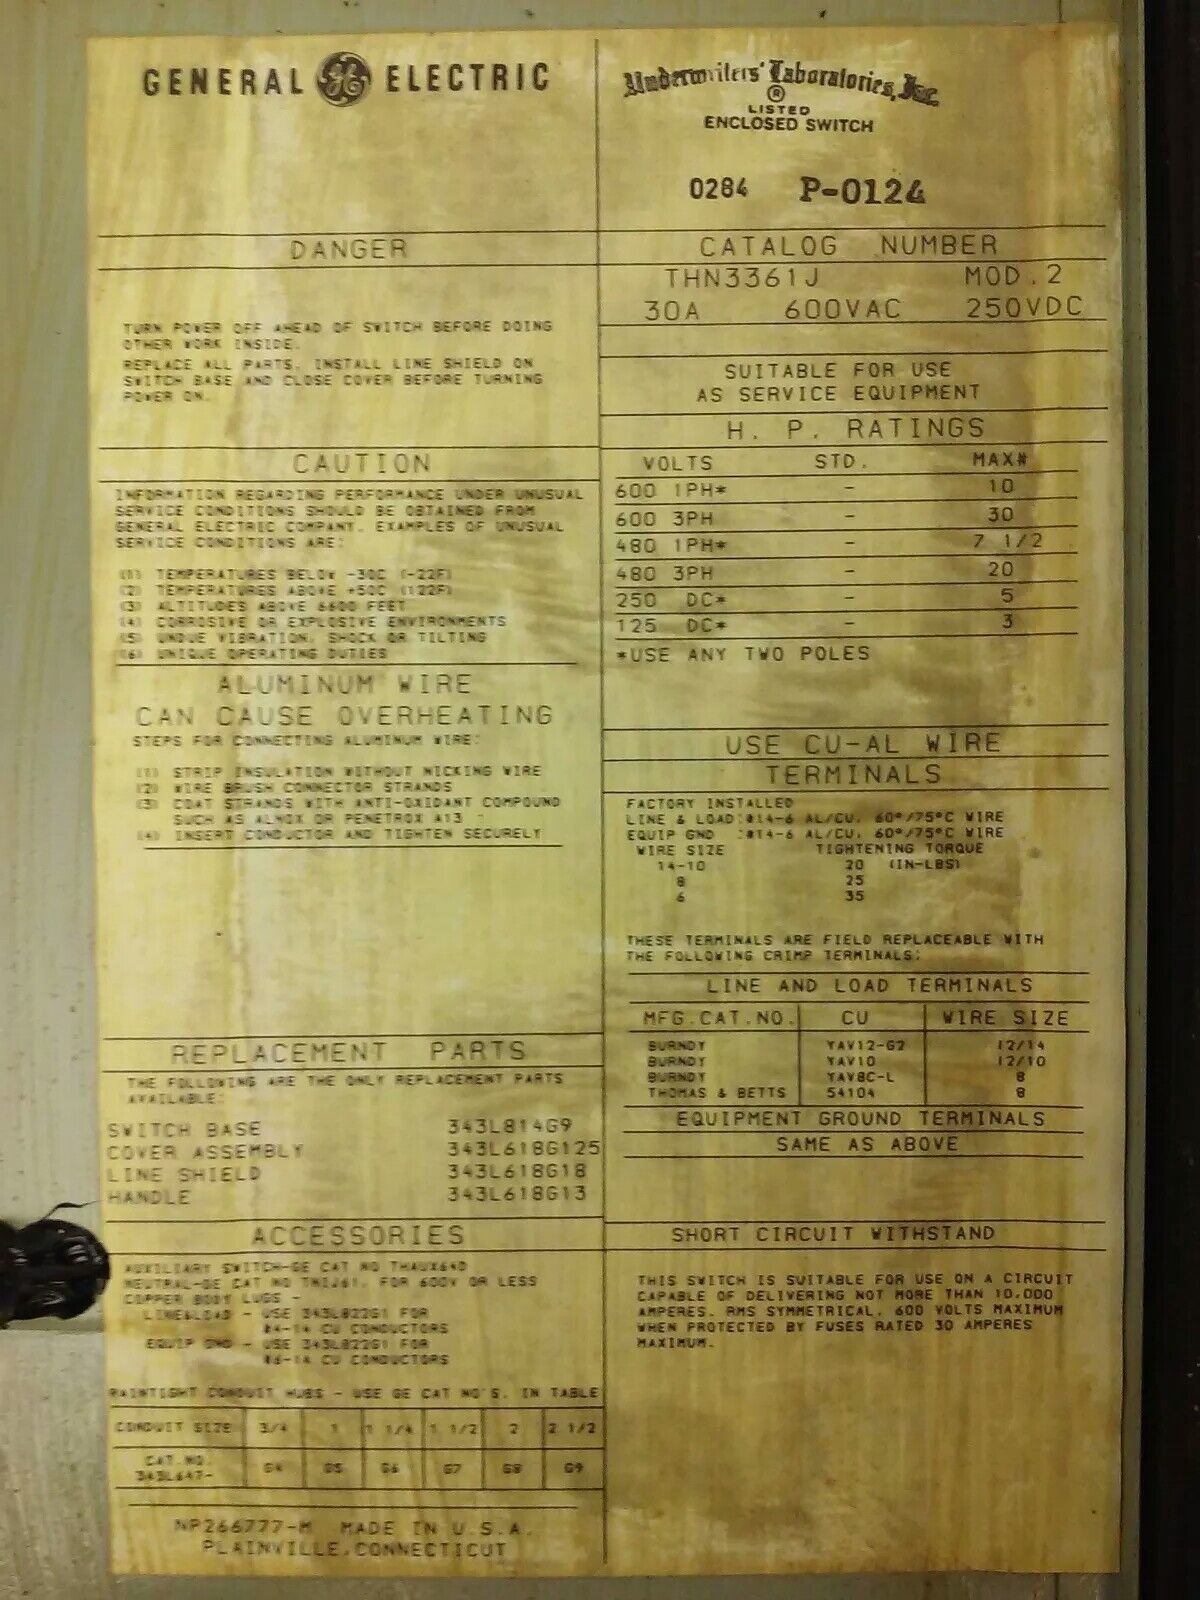 GENERAL GE ELECTRIC
DANGER
TURN POWER OFF AHEAD OF SWITCH BEFORE DOING
OTHER WORK INSIDE.
REPLACE ALL PARTS, INSTALL LINE SHIELD ON
SWITCH BASE AND CLOSE COVER BEFORE TURNING
POWER ON.
CAUTION
INFORMATION REGARDING PERFORMANCE UNDER UNUSUAL
SERVICE CONDITIONS SHOULD BE OBTAINED FROM
GENERAL ELECTRIC COMPANY. EXAMPLES OF UNUSUAL
SERVICE CONDITIONS ARE:
(1) TEMPERATURES BELOW -30C (-22F)
(2) TEMPERATURES ABOVE +50C (122F)
(3) ALTITUDES ABOVE 6600 FEET
(4) CORROSIVE OR EXPLOSIVE ENVIRONMENTS
(5) UNDUE VIBRATION, SHOCK OR TILTING
(6) UNIQUE OPERATING DUTIES
ALUMINUM WIRE
CAN CAUSE OVERHEATING
STEPS FOR CONNECTING ALUMINUM WIRE:
(1) STRIP INSULATION WITHOUT NICKING WIRE
(2) WIRE BRUSH CONNECTOR STRANDS
(3) COAT STRANDS WITH ANTI-OXIDANT COMPOUND
SUCH AS ALNOX OR PENETROX A13
(4) INSERT CONDUCTOR AND TIGHTEN SECURELY
REPLACEMENT PARTS
THE FOLLOWING ARE THE ONLY REPLACEMENT PARTS
AVAILABLE:
SWITCH BASE 343L814G9
COVER ASSEMBLY 343L618G125
LINE SHIELD 343L618G18
HANDLE 343L618G13
ACCESSORIES
AUXILIARY SWITCH-GE CAT NO THAUX64D
NEUTRAL-GE CAT NO TNIJ61, FOR 600V OR LESS
COPPER BODY LUGS -
LINE&LOAD - USE 343L822G1 FOR
#4-14 CU CONDUCTORS
EQUIP GND - USE 343L822G1 FOR
#6-14 CU CONDUCTORS
RAINTIGHT CONDUIT HUBS - USE GE CAT NO'S. IN TABLE
CONDUIT SIZE 3/4 1 1 1/4 1 1/2 2 2 1/2
CAT.NO. 343L647- G4 G5 G6 G7 G8 G9
NP266777-M MADE IN U.S.A.
PLAINVILLE,CONNECTICUT
Underwriters' Laboratories, Inc.
®
LISTED
ENCLOSED SWITCH
0284 P-0124
CATALOG NUMBER
THN3361J MOD.2
30A 600VAC 250VDC
SUITABLE FOR USE
AS SERVICE EQUIPMENT
H. P. RATINGS
VOLTS STD. MAX#
600 1PH* - 10
600 3PH - 30
480 1PH* - 7 1/2
480 3PH - 20
250 DC* - 5
125 DC* - 3
*USE ANY TWO POLES
USE CU-AL WIRE
TERMINALS
FACTORY INSTALLED
LINE & LOAD:#14-6 AL/CU, 60°/75°C WIRE
EQUIP GND :#14-6 AL/CU, 60°/75°C WIRE
WIRE SIZE TIGHTENING TORQUE
14-10 20 (IN-LBS)
8 25
6 35
THESE TERMINALS ARE FIELD REPLACEABLE WITH
THE FOLLOWING CRIMP TERMINALS:
LINE AND LOAD TERMINALS
MFG.CAT.NO. CU WIRE SIZE
BURNDY YAV12-G2 12/14
BURNDY YAV10 12/10
BURNDY YAV8C-L 8
THOMAS & BETTS 54104 8
EQUIPMENT GROUND TERMINALS
SAME AS ABOVE
SHORT CIRCUIT WITHSTAND
THIS SWITCH IS SUITABLE FOR USE ON A CIRCUIT
CAPABLE OF DELIVERING NOT MORE THAN 10,000
AMPERES, RMS SYMMETRICAL, 600 VOLTS MAXIMUM
WHEN PROTECTED BY FUSES RATED 30 AMPERES
MAXIMUM.